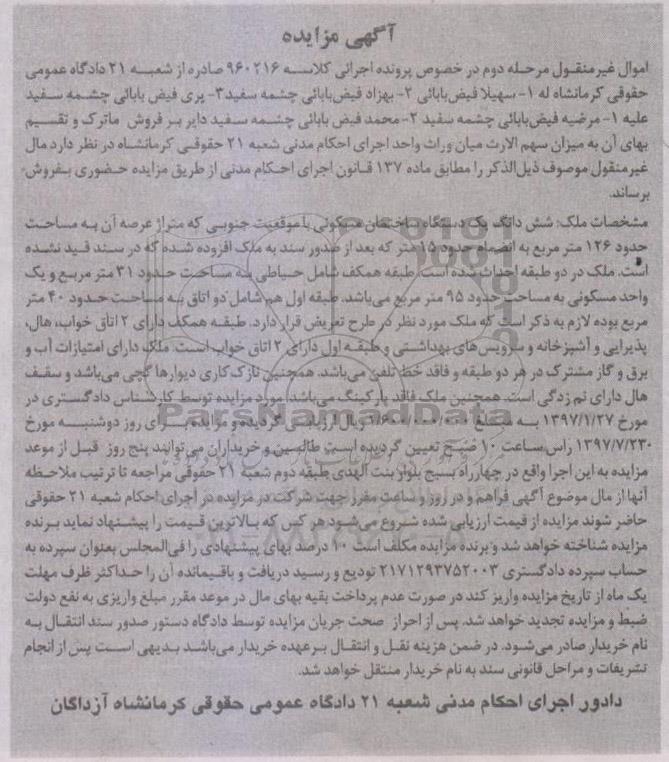 آگهی مزایده
اموال غیرمنقول مرحله دوم در خصوص پرونده اجرائی کلاسه ۹۶۰۲۱۶ صادره از شعبه ۲۱ دادگاه عمومی
حقوقی کرمانشاه له ۱- سهیلا فیض‌بابائی ۲- بهزاد فیض‌بابائی چشمه سفید۳- پری فیض بابائی چشمه سفید
علیه ۱- مرضیه فیض‌بابائی چشمه سفید ۲-محمد فیض بابائی چشمه سفید دایر بر فروش ماترک و تقسیم
بهای آن به میزان سهم الارث میان وراث واحد اجرای احکام مدنی شعبه ۲۱ حقوقی کرمانشاه در نظر دارد مال
غیرمنقول موصوف ذیل‌الذکر را مطابق ماده ۱۳۷ قانون اجرای احکام مدنی از طریق مزایده حضوری بفروش
برساند.
مشخصات ملک: شش دانگ یک دستگاه ساختمان مسکونی با موقعیت جنوبی که متراژ عرصه آن به مساحت
حدود ۱۲۶ متر مربع به انضمام حدود ۱۵ متر که بعد از صدور سند به ملک افزوده شده که در سند قید نشده
است. ملک در دو طبقه احداث شده است. طبقه همکف شامل حیاطی به مساحت حدود ۳۱ متر مربع و یک
واحد مسکونی به مساحت حدود ۹۵ متر مربع می‌باشد. طبقه اول هم شامل دو اتاق به مساحت حدود ۴۰ متر
مربع بوده لازم به ذکر است که ملک مورد نظر در طرح تعریض قرار دارد. طبقه همکف دارای ۲ اتاق خواب، هال،
پذیرایی و آشپزخانه و سرویس‌های بهداشتی و طبقه اول دارای ۲ اتاق خواب است. ملک دارای امتیازات آب و
برق و گاز مشترک در هر دو طبقه و فاقد خط تلفن می‌باشد. همچنین نازک کاری دیوارها گچی می‌باشد و سقف
هال دارای نم زدگی است. همچنین ملک فاقد پارکینگ می‌باشد. مورد مزایده توسط کارشناس دادگستری در
مورخ ۱۳۹۷/۱/۲۷ به مبلغ ریال ارزیابی گردیده و مزایده برای روز دوشنبه مورخ
۱۳۹۷/۷/۲۳ راس ساعت ۱۰ صبح تعیین گردیده است طالبین و خریداران می‌توانند پنج روز قبل از موعد
مزایده به این اجرا واقع در چهارراه بسیج بلوار بنت الهدی طبقه دوم شعبه ۲۱ حقوقی مراجعه تا ترتیب ملاحظه
آنها از مال موضوع آگهی فراهم و در روز و ساعت مقرر جهت شرکت در مزایده در اجرای احکام شعبه ۲۱ حقوقی
حاضر شوند مزایده از قیمت ارزیابی شده شروع می‌شود هر کس که بالاترین قیمت را پیشنهاد نماید برنده
مزایده شناخته خواهد شد و برنده مزایده مکلف است ۱۰ درصد بهای پیشنهادی را فی‌المجلس بعنوان سپرده به
حساب سپرده دادگستری ۲۱۷۱۲۹۳۷۵۲۰۰۳ تودیع و رسید دریافت و باقیمانده آن را حداکثر ظرف مهلت
یک ماه از تاریخ مزایده واریز کند در صورت عدم پرداخت بقیه بهای مال در موعد مقرر مبلغ واریزی به نفع دولت
ضبط و مزایده تجدید خواهد شد. پس از احراز صحت جریان مزایده توسط دادگاه دستور صدور سند انتقال به
نام خریدار صادر می‌شود. در ضمن هزینه نقل و انتقال برعهده خریدار می‌باشد بدیهی است پس از انجام
تشریفات و مراحل قانونی سند به نام خریدار منتقل خواهد شد.
دادور اجرای احکام مدنی شعبه ۲۱ دادگاه عمومی حقوقی کرمانشاه آزداگان
ParsNamadData